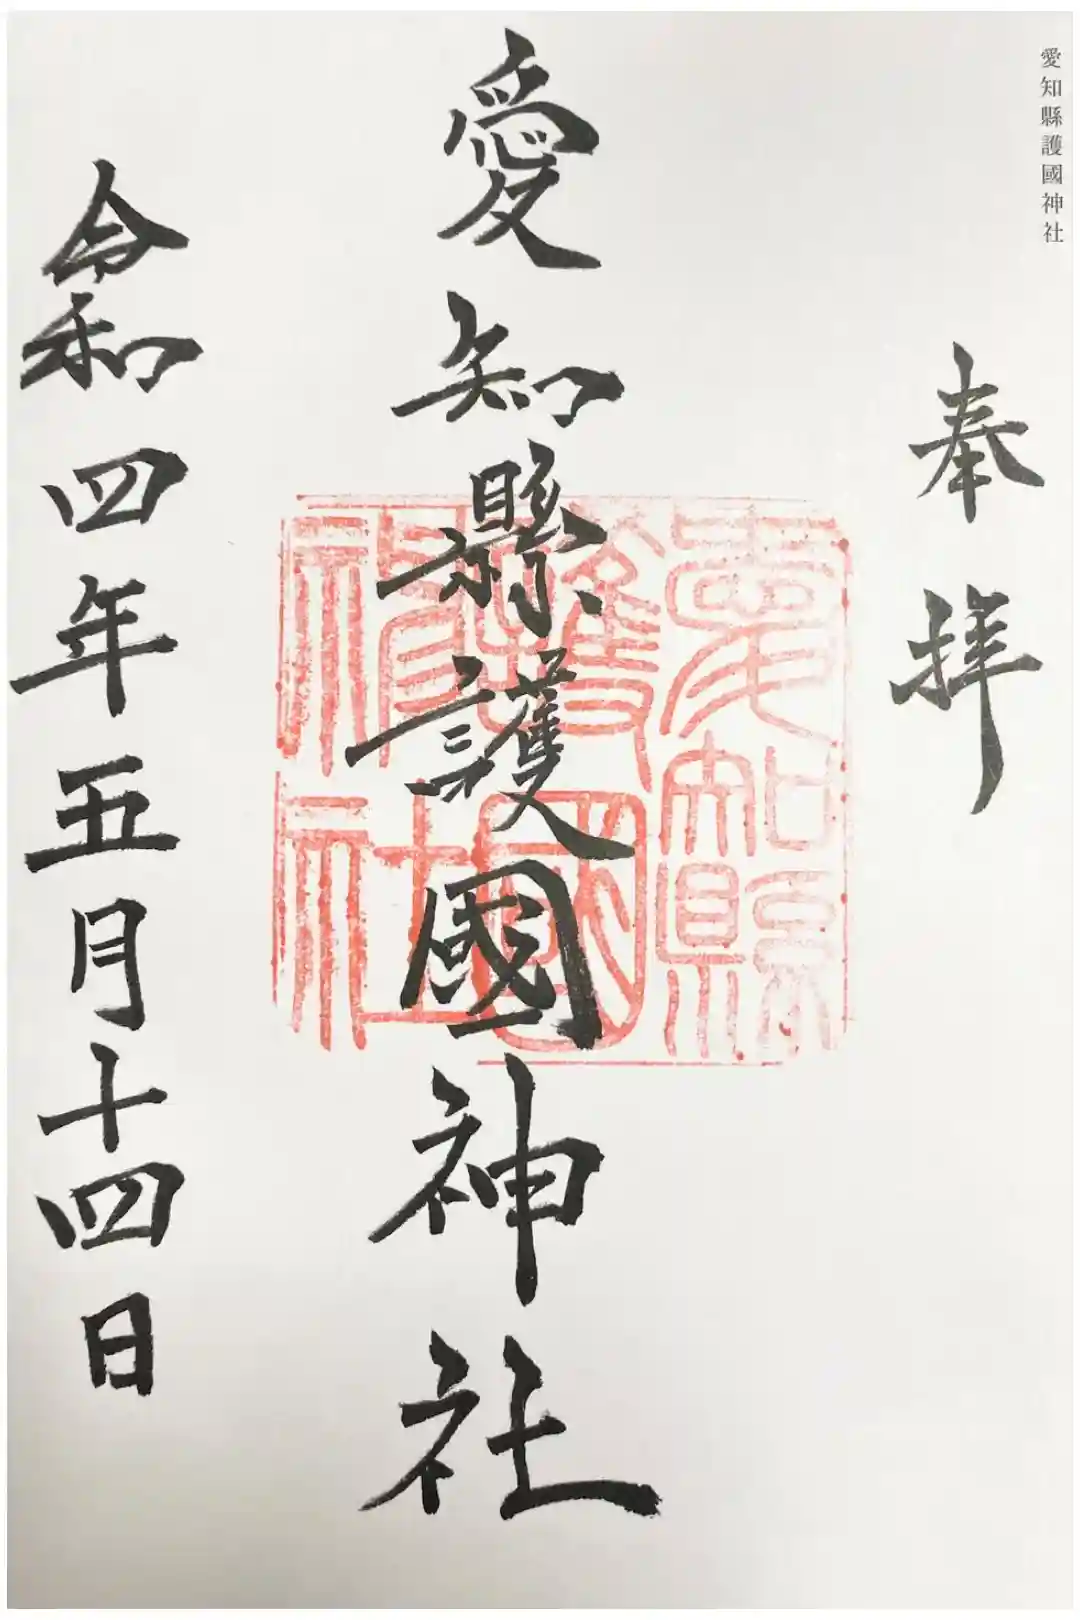 愛知縣護國神社
奉拝
愛知縣護國神社
愛知縣
護國
神社
令和四年五月十四日